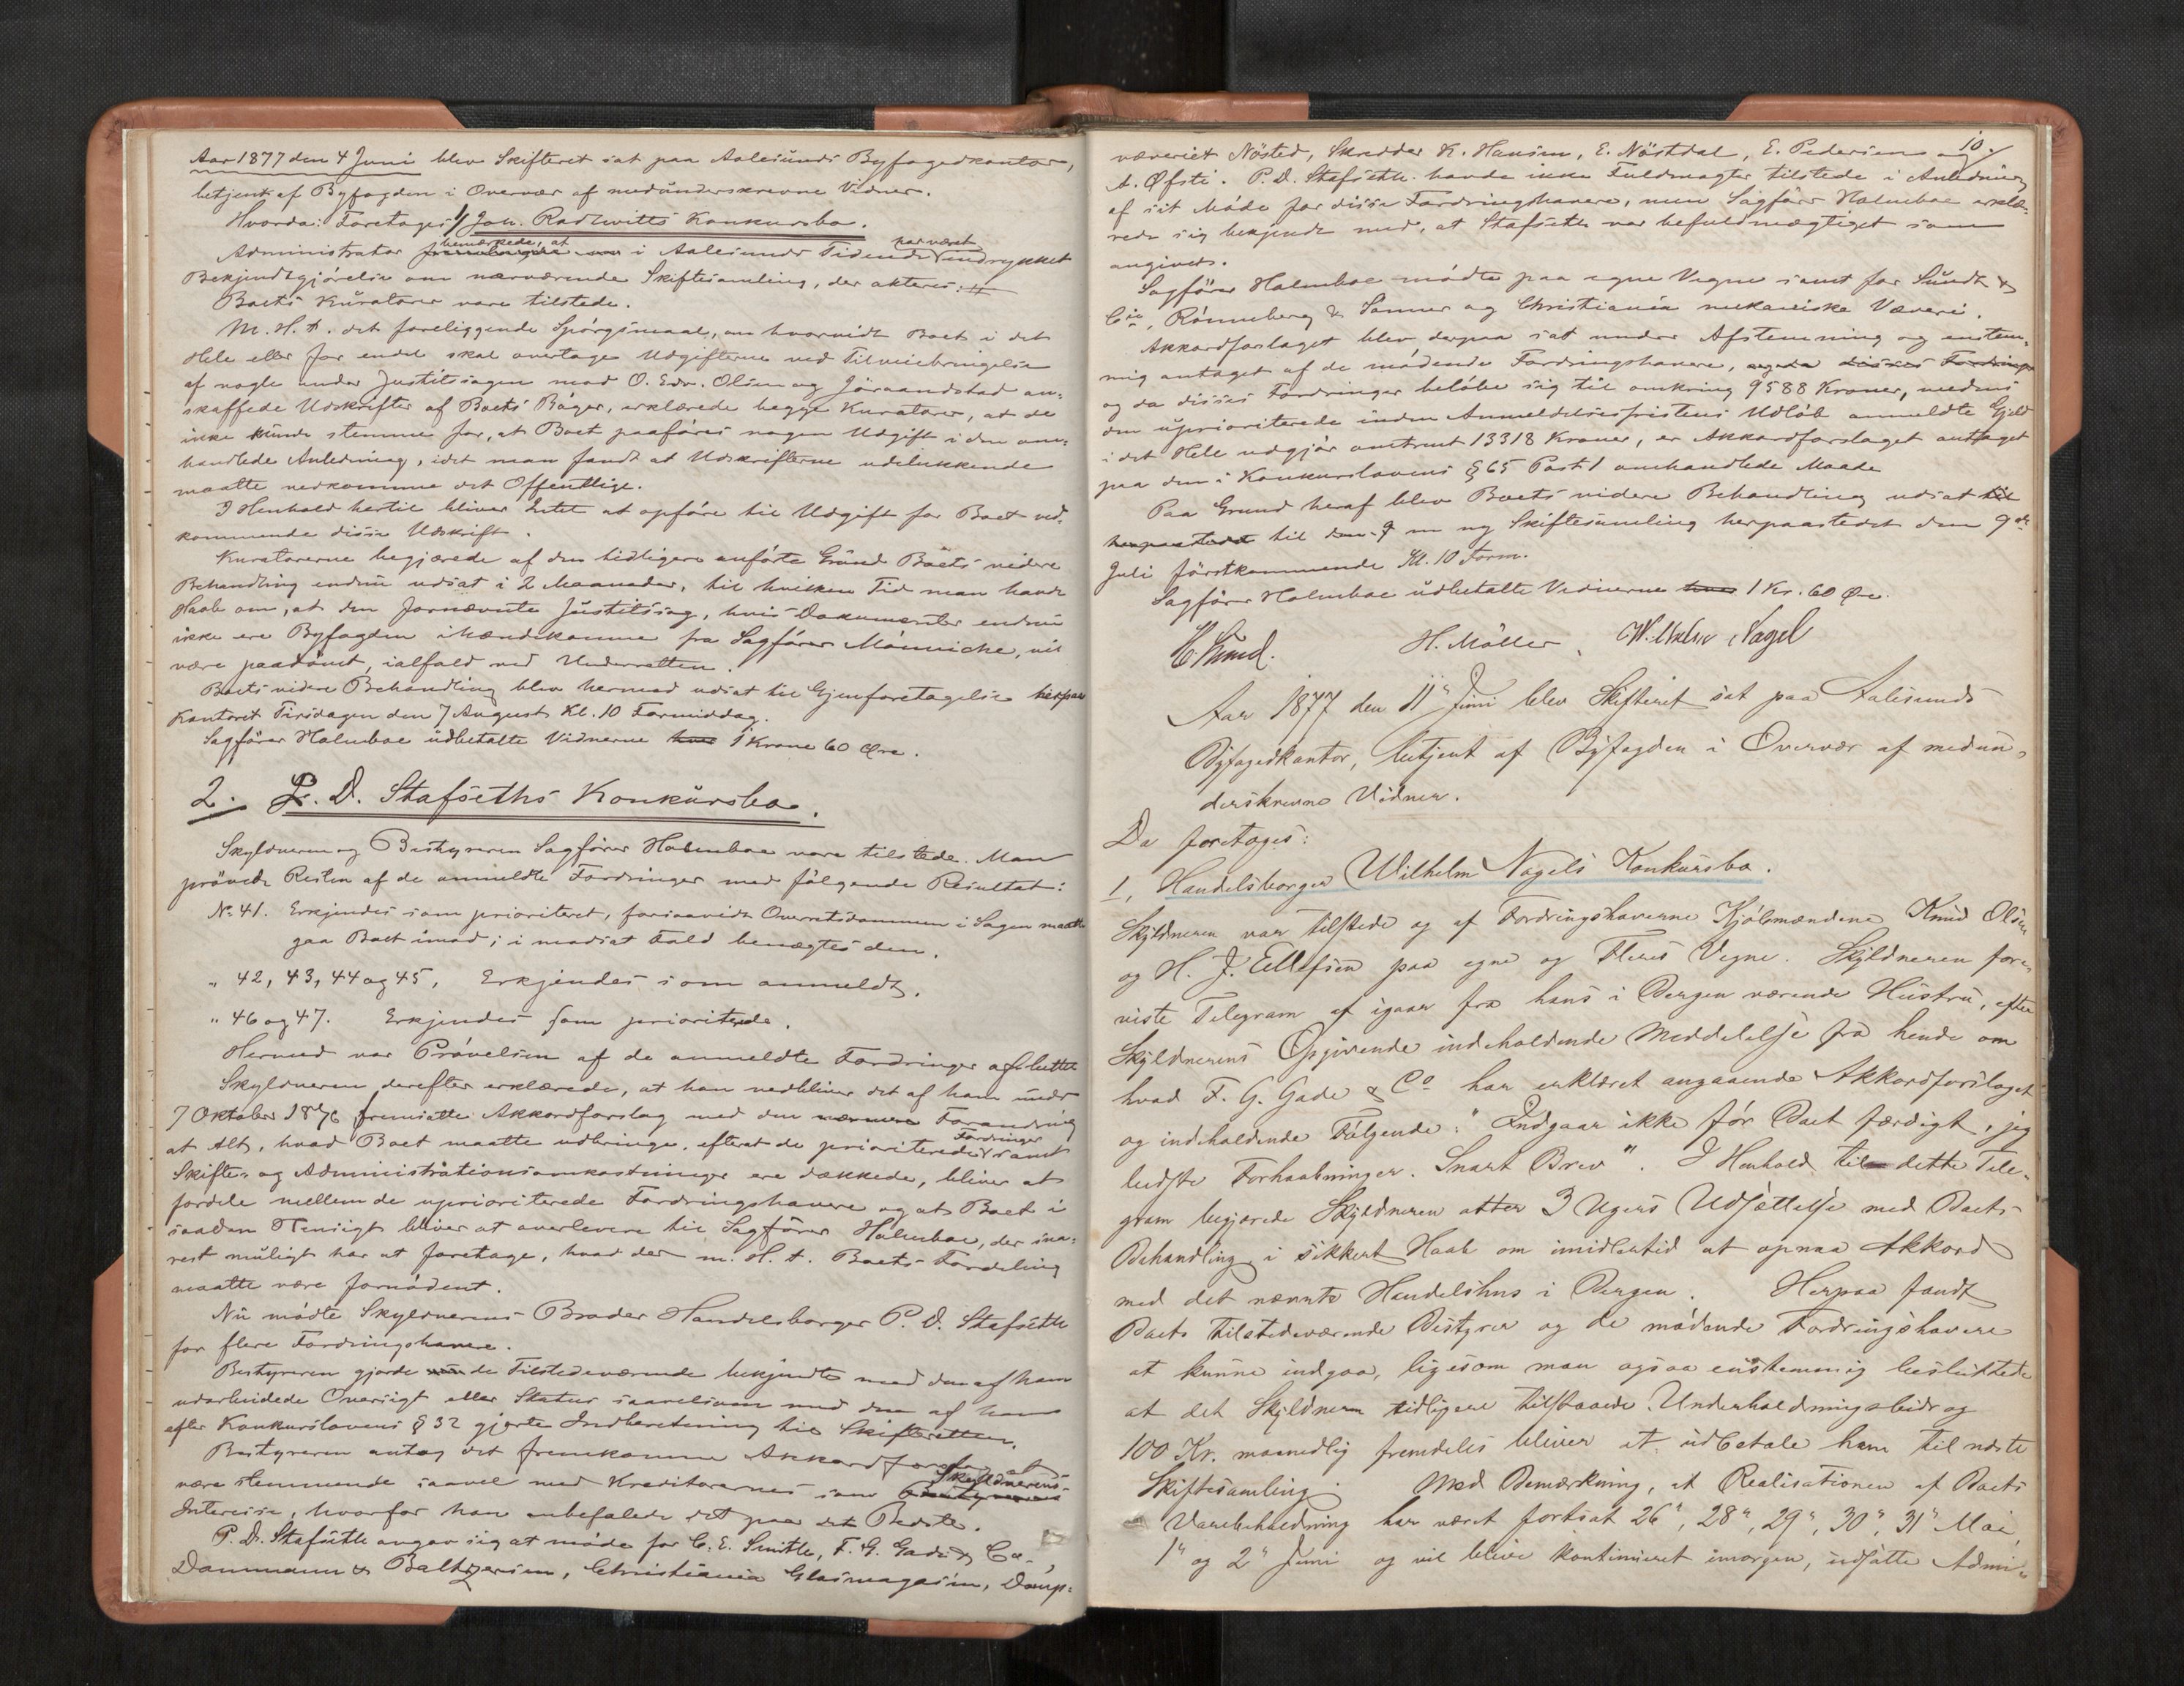 Aar 1877 den 4 Juni blev Skifteret sat paa Aalesunds Byfogedkontor,
betjent af Byfogden i Overvær af medunderskrevne Vidner.
Hvorda: Foretoges 1/ Joh. Radlwitts Konkursbo.
bemærkede, at har været
Administrator fremlagde i Aalesunds Tidende indrykket
Bekjendtgjørelse om nærværende Skiftesamling, der akteres:
Boets Kuratorer vare tilstede.
M. H. t. det foreliggende Spørgsmaal, om hvorvidt Boet i det
Hele eller for endel skal overtage Udgifterne ved Tilveiebringelse
af nogle under Justitssagen mod O. Edv. Olsen og Jøraandstad an-
skaffede Udskrifter af Boets Bøger, erklærede begge Kuratorer, at de
ikke kunde stemme for, at Boet paaføres nogen Udgift i den om-
handlede Anledning, idet man fandt at Udskrifterne udelukkende
maatte vedkomme det Offentlige.
I Henhold hertil bliver Intet at opføre til Udgift for Boet ved-
kommende disse Udskrift.
Kuratorerne begjærede af den tidligere anførte Grund Boets videre
Behandling endnu udsat i 2 Maaneder, til hvilken Tid man havde
Haab om, at den fornævnte Justitssag, hvis Dokumenter endnu
ikke ere Byfogden ihændekomne fra Sagfører Mönniche, vil
være paadömt, ialfald ved Underretten.
Boets videre Behandling blev hermed udsat til Gjenforetagelse herpaa
Kontoret Tirsdagen den 7 August Kl. 10 Formiddag.
Sagfører Holmboe udbetalte Vidnerne hver 1 Krone 60 Øre.
2. P. D. Stafseths Konkursbo.
Skyldneren og Bestyreren Sagfører Holmboe vare tilstede. Man
prövede Resten af de anmeldte Fordringer med følgende Resultat:
No 41. Erkjendes som prioriteret, forsaavidt Overretsdommen i Sagen maatte
gaa Boet imod; i modsat Fald benægtes den.
" 42, 43, 44 og 45, Erkjendes som anmeldt.
" 46 og 47. Erkjendes som prioriterede.
Hermed var Prövelsen af de anmeldte Fordringer afsluttet
Skyldneren derefter erklærede, at han vedbliver det af ham under
7 Oktober 1876 fremsatte Akkordforslag med den nærmere Forandring
at Alt, hvad Boet maatte udbringe, efterat de prioriterede Fordringer samt
Skifte- og Administrationsomkostninger ere dækkede, bliver at
fordele mellem de uprioriterede Fordringshavere og at Boet i
saadan Hensigt bliver at overlevere til Sagfører Holmboe, der sna-
rest muligt har at foretage, hvad der m. H. t. Boets Fordeling
maatte være fornödent.
Nu mødte Skyldnerens Broder Handelsborger P. O. Stafseth
for flere Fordringshavere.
Bestyreren gjorde nu de Tilstedeværende bekjendte med den af ham
udarbeidede Oversigt eller Status saavelsom med den af ham
efter Konkurslovens § 32 gjorte Indberetning til Skifteretten.
Bestyreren antog det fremkomne Akkordforslag at
være stemmende saavel med Kreditorernes som Bestyrerens Skyldnerens
Interesse, hvorfor han anbefalede det paa det Bedste.
P. D. Stafseth angav sig at møde for C. E. Smith, F. G. Gade & Co.,
Dammann & Baltzersen, Christiania Glasmagasin, Damp-
10.
væveriet Nösted, Skredder K. Hansen, E. Nöstdal, E. Pedersen og
A. Øfsti. P. D. Stafseth havde ikke Fuldmagter tilstede i Anledning
af sit Møde for disse Fordringshavere, men Sagfører Holmboe erklæ-
rede sig bekjendt med, at Stafseth var befuldmægtiget som
angivet.
Sagfører Holmboe mødte paa egne Vegne samt for Sundt &
Cie, Rönneberg & Sønner og Christiania mekaniske Væveri.
Akkordforslaget blev derpaa sat under Afstemning og enstem-
mig antaget af de mødende Fordringshavere, og da disses Fordringe
og da disses Fordringer beløbe sig til omkring 9588 Kroner, medens
den uprioriterede inden Anmeldelsesfristens Udløb anmeldte Gjeld
i det Hele udgjør omtrent 13318 Kroner, er Akkordforslaget antaget
paa den i Konkurslovens § 65 Post 1 omhandlede Maade
Paa Grund heraf blev Boets videre Behandling udsat til
herpaastedet til den 9 en ny Skiftesamling herpaastedet den 9de
Juli førstkommende Kl. 10 Form.
Sagfører Holmboe udbetalte Vidnerne hver 1 Kr. 60 Øre.
H. Möller, Wilhelm Nagel
Aar 1877 den 11te Juni blev Skifteret sat paa Aalesunds
Byfogedkontor, betjent af Byfogden i Overvær af medun-
derskrevne Vidner.
Da foretoges:
1, Handelsborger Wilhelm Nagels Konkursbo.
Skyldneren var tilstede og af Fordringshaverne Kjøbmændene Knud Olsen
og H. J. Ellefsen paa egne og Fleres Vegne. Skyldneren fore-
viste Telegram af igaar fra hans i Bergen værende Hustru, efter
Skyldnerens Opgivende indeholdende Meddelelse fra hende om
hvad F. G. Gade & Co har erklæret angaaende Akkordforslaget
og indeholdende Følgende: "Indgaar ikke før Boet færdigt, jeg
bedste Forhaabninger. Snart Brev". I Henhold til dette Tele-
gram begjærede Skyldneren atter 3 Ugers Udsættelse med Boets
Behandling i sikkert Haab om imidlertid at opnaa Akkord
med det nævnte Handelshus i Bergen. Herpaa fandt
Boets tilstedeværende Bestyrer og de mødende Fordringshavere
at kunne indgaa, ligesom man ogsaa enstemmig besluttede
at det Skyldneren tidligere tilstaaede Underholdningsbidrag
100 Kr. maanedlig fremdeles bliver at udbetale ham til næste
Skiftesamling. Med Bemærkning, at Realisationen af Boets
Varebeholdning har været fortsat 26", 28", 29", 30", 31" Mai,
1" og 2" Juni og vil blive kontinueret imorgen, udsatte Admi-